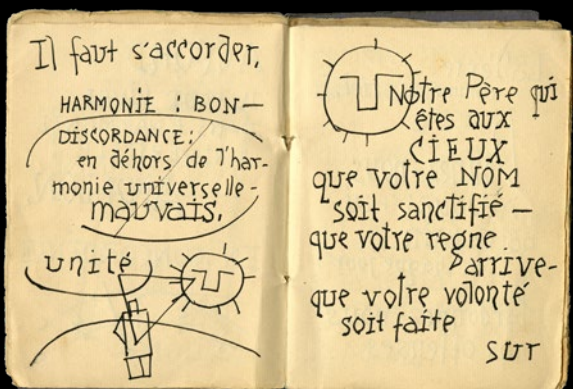 Il faut s'accorder.
HARMONIE : BON—
DISCORDANCE:
en déhors de l'har-
monie universelle-
mauvais.
unité
Nôtre Père qui
êtes aux
CIEUX
que votre NOM
soit sanctifié —
que votre regne
arrive-
que votre volonté
soit faite
sur